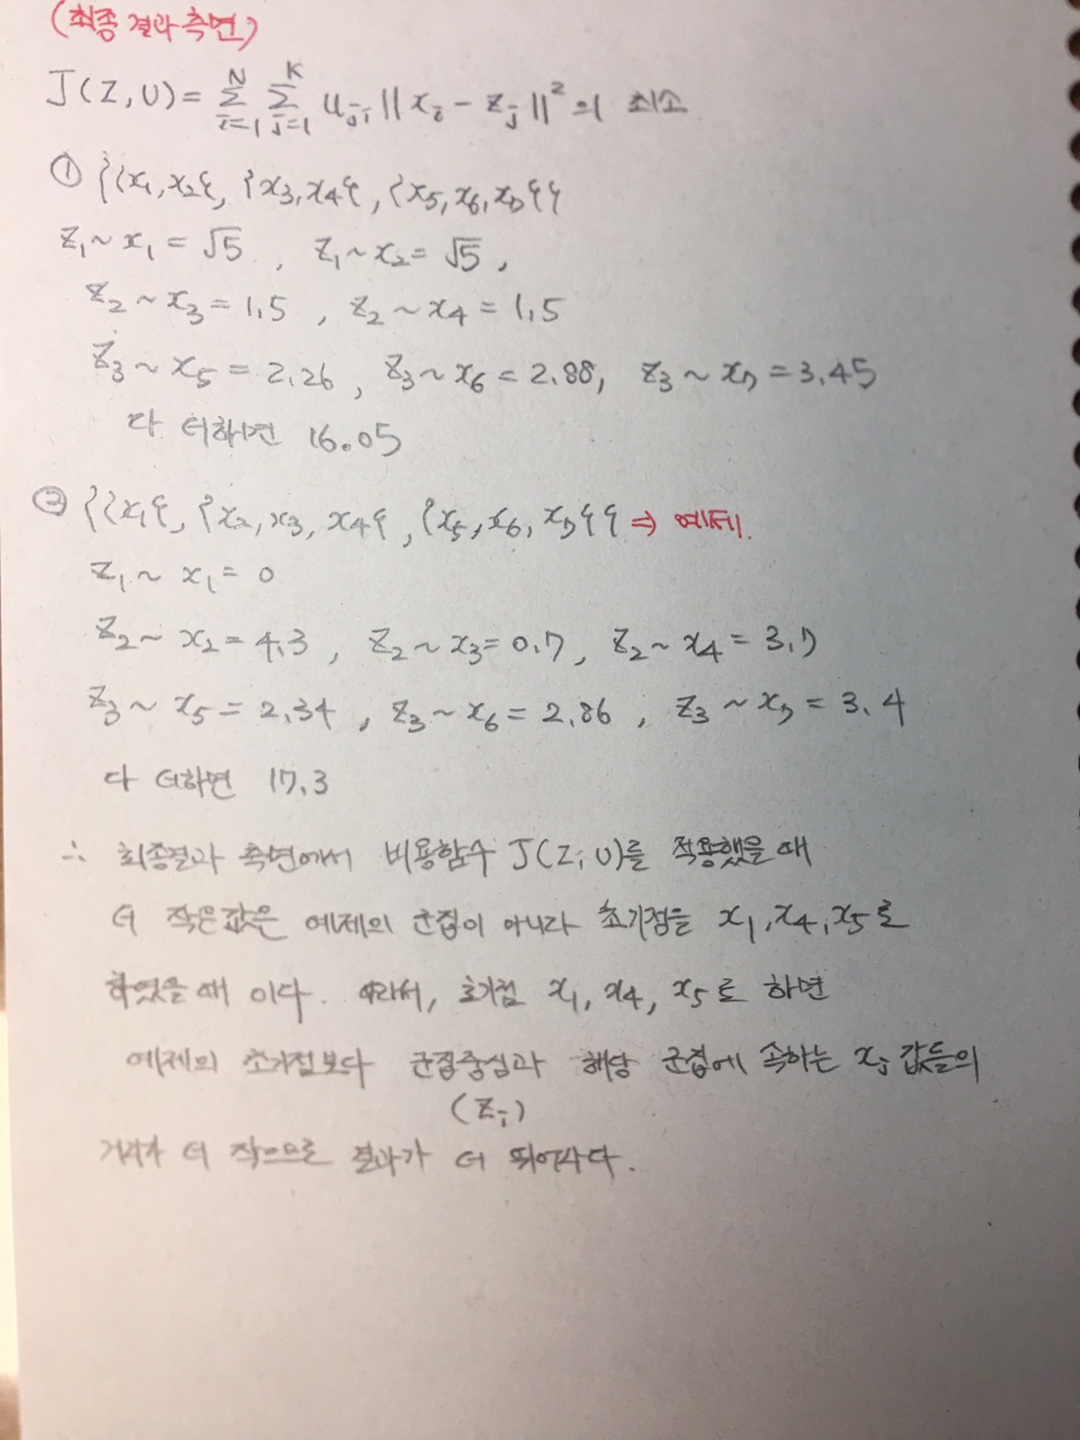 (최종 결과 측면)
J(Z,U) = Σ_{i=1}^{N} Σ_{j=1}^{K} u_{ji} ||x_i - z_j||² 의 최소
① {{x₁,x₂}, {x₃,x₄}, {x₅,x₆,x₇}}
z₁~x₁ = √5 , z₁~x₂ = √5 ,
z₂~x₃ = 1.5 , z₂~x₄ = 1.5
z₃~x₅ = 2.26 , z₃~x₆ = 2.88, z₃~x₇ = 3.45
다 더하면 16.05
② {{x₁}, {x₂,x₃,x₄}, {x₅,x₆,x₇}} ⇒ 예제.
z₁~x₁ = 0
z₂~x₂ = 4.3 , z₂~x₃ = 0.7, z₂~x₄ = 3.7
z₃~x₅ = 2.34 , z₃~x₆ = 2.86 , z₃~x₇ = 3.4
다 더하면 17.3
∴ 최종결과 측면에서 비용함수 J(Z,U)를 적용했을 때
더 작은값은 예제의 군집이 아니라 초기점을 x₁,x₄,x₅로
하였을 때 이다. 따라서, 초기점 x₁, x₄, x₅로 하면
예제의 초기점보다 군집중심과 해당 군집에 속하는 x_i 값들의
(z_i)
거리가 더 작으므로 결과가 더 뛰어나다.